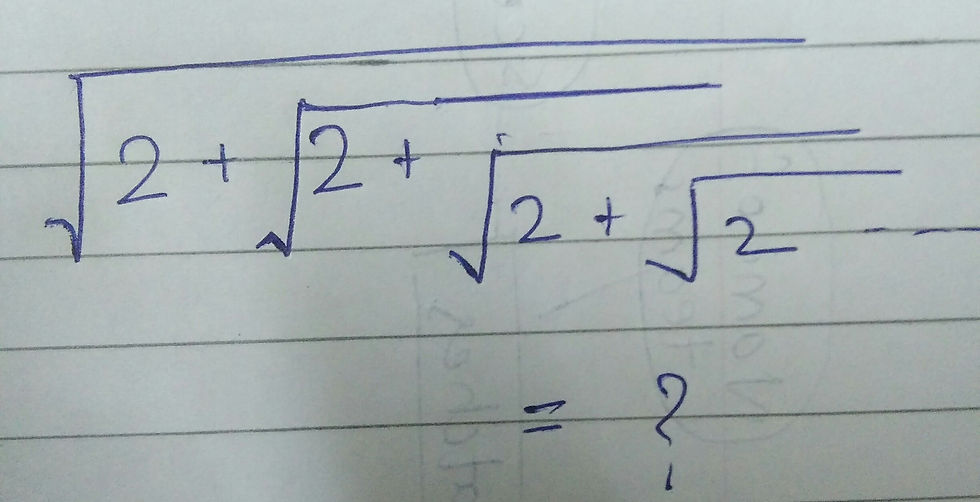 √2 + √2 + √2 + √2 - -
= ?